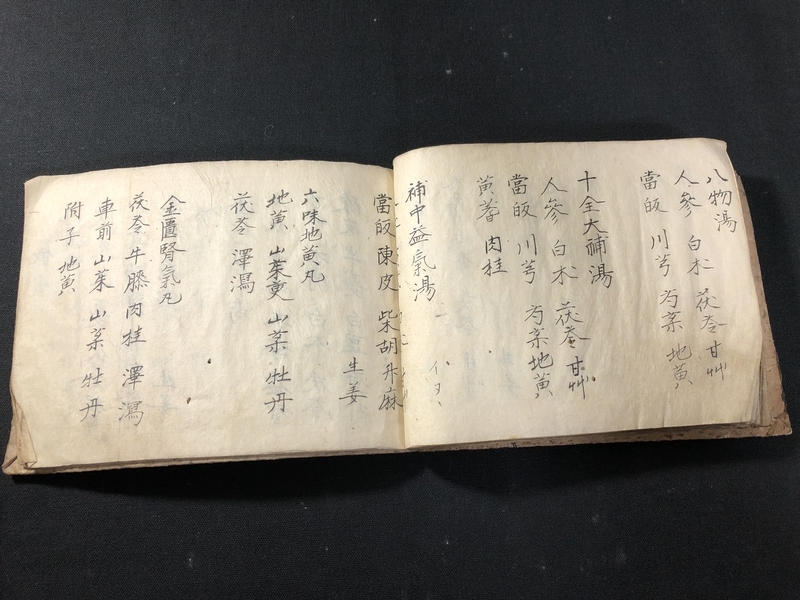 八物湯
人參 白朮 茯苓 甘艸
當皈 川芎 芍薬 地黄
十全大補湯
人參 白朮 茯苓 甘艸
當皈 川芎 芍薬 地黄
黄蓍 肉桂
補中益氣湯
當皈 陳皮 柴胡 升麻
生姜
六味地黄丸
地黄 山茱萸 山薬 牡丹
茯苓 澤瀉
金匱腎氣丸
茯苓 牛膝 肉桂 澤瀉
車前 山茱 山薬 牡丹
附子 地黄